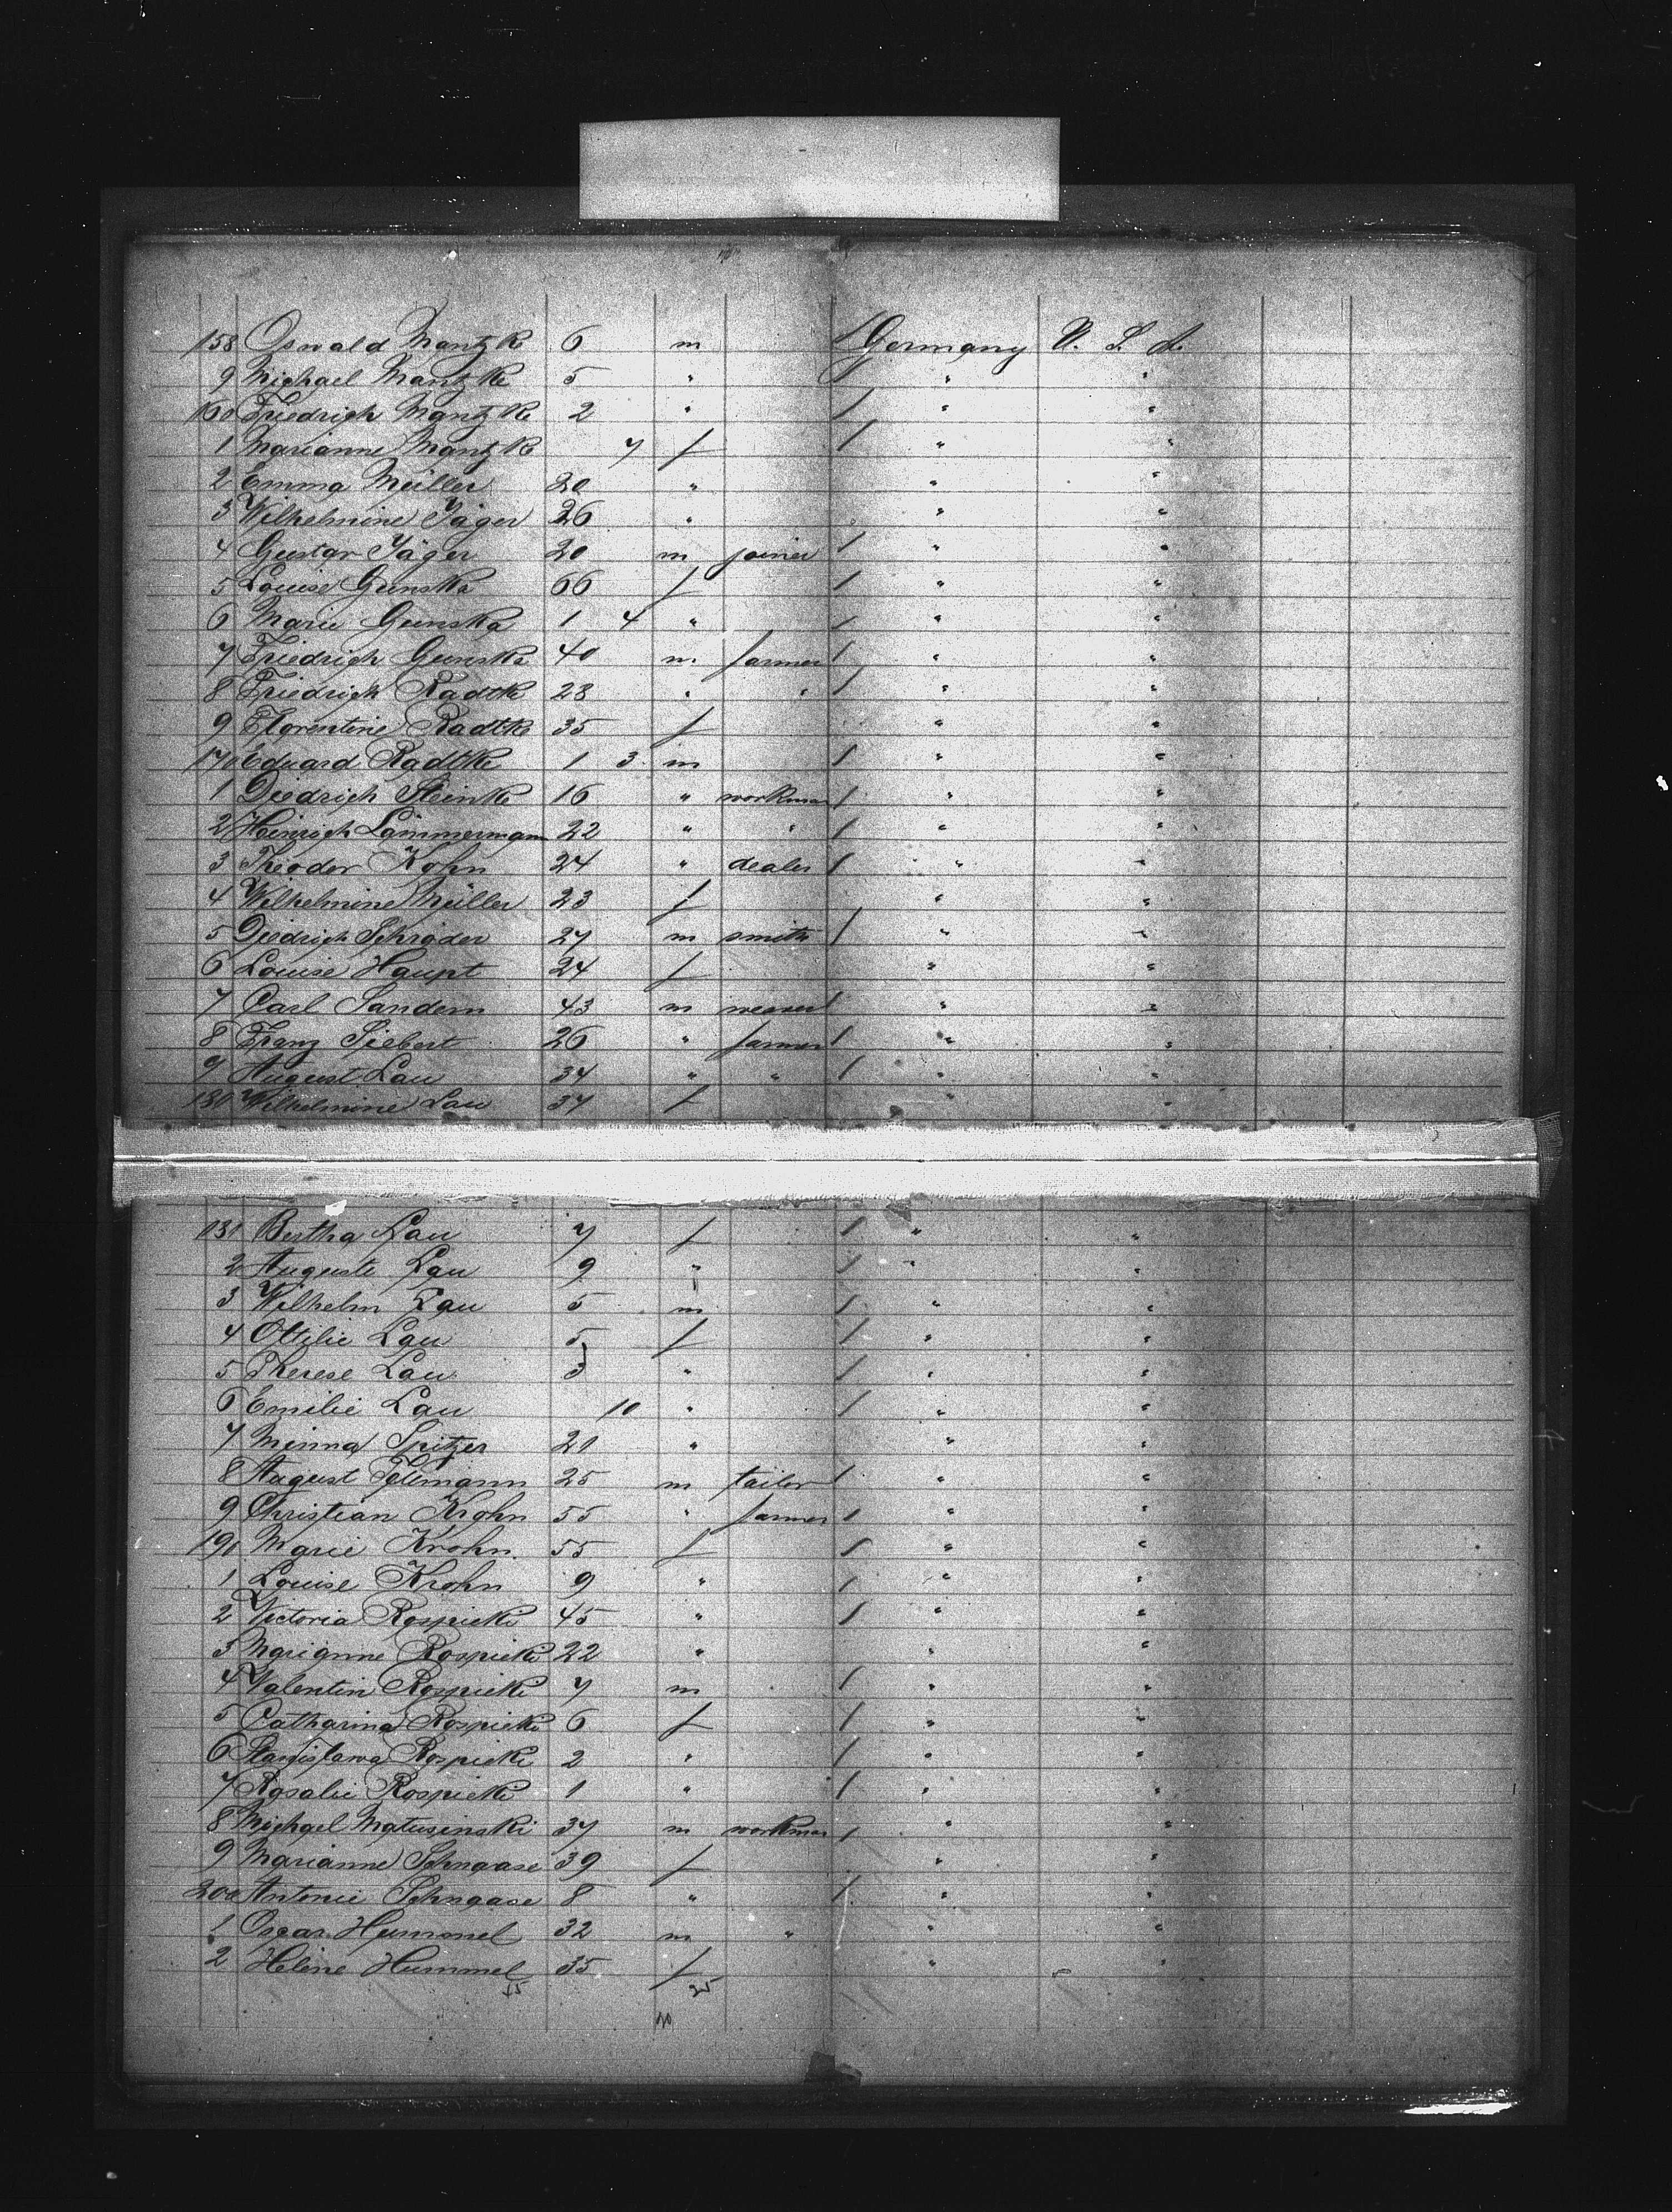 158 Oswald Mantzke 6 m 1 Germany U. S. A.
9 Michael Mantzke 5 " 1 " "
160 Friedrich Mantzke 2 " 1 " "
1 Marianne Mantzke 7 f 1 " "
2 Emma Müller 20 " " "
3 Wilhelmine Jäger 26 " " "
4 Gustav Jäger 20 m joiner 1 " "
5 Louise Gunska 66 f 1 " "
6 Marie Gunska 1 4 " 1 " "
7 Friedrich Gunska 40 m farmer 1 " "
8 Friedrich Radtke 28 " " 1 " "
9 Florentine Radtke 35 f " "
170 Eduard Radtke 1 3 m 1 " "
1 Diedrich Steinke 16 " workman 1 " "
2 Heinrich Lämmermann 22 " " 1 " "
3 Theodor Kohn 24 " dealer 1 " "
4 Wilhelmine Müller 23 f " "
5 Diedrich Schröder 27 m smith 1 " "
6 Louise Haupt 24 f " "
7 Carl Sandern 43 m weaver 1 " "
8 Franz Siebert 26 " farmer 1 " "
9 August Lau 34 " " 1 " "
180 Wilhelmine Lau 37 f "
181 Bertha Lau 7 f 1 " "
2 Auguste Lau 9 " 1 " "
3 Wilhelm Lau 5 m 1 " "
4 Ottilie Lau 5 f 1 " "
5 Therese Lau 3 " 1 " "
6 Emilie Lau 10 " 1 " "
7 Minna Spitzer 21 " " "
8 August 25 m tailor 1 " "
9 Christian Krohn 55 " farmer 1 " "
190 Marie Krohn 55 f 1 " "
1 Louise Krohn 9 " 1 " "
2 Victoria Rospicki 45 " 1 " "
3 Marianne Rospicki 22 " " "
4 Valentin Rospicki 7 m 1 " "
5 Catharina Rospicki 6 f 1 " "
6 Stanislawa Rospicki 2 " 1 " "
7 Rosalie Rospicki 1 " 1 " "
8 Michael Matusinski 37 m workman 1 " "
9 Marianne Schnaase 39 f " "
200 Antonie Schnaase 8 " 1 " "
1 Oscar Hummel 32 m " " "
2 Helene Hummel 35 f " "